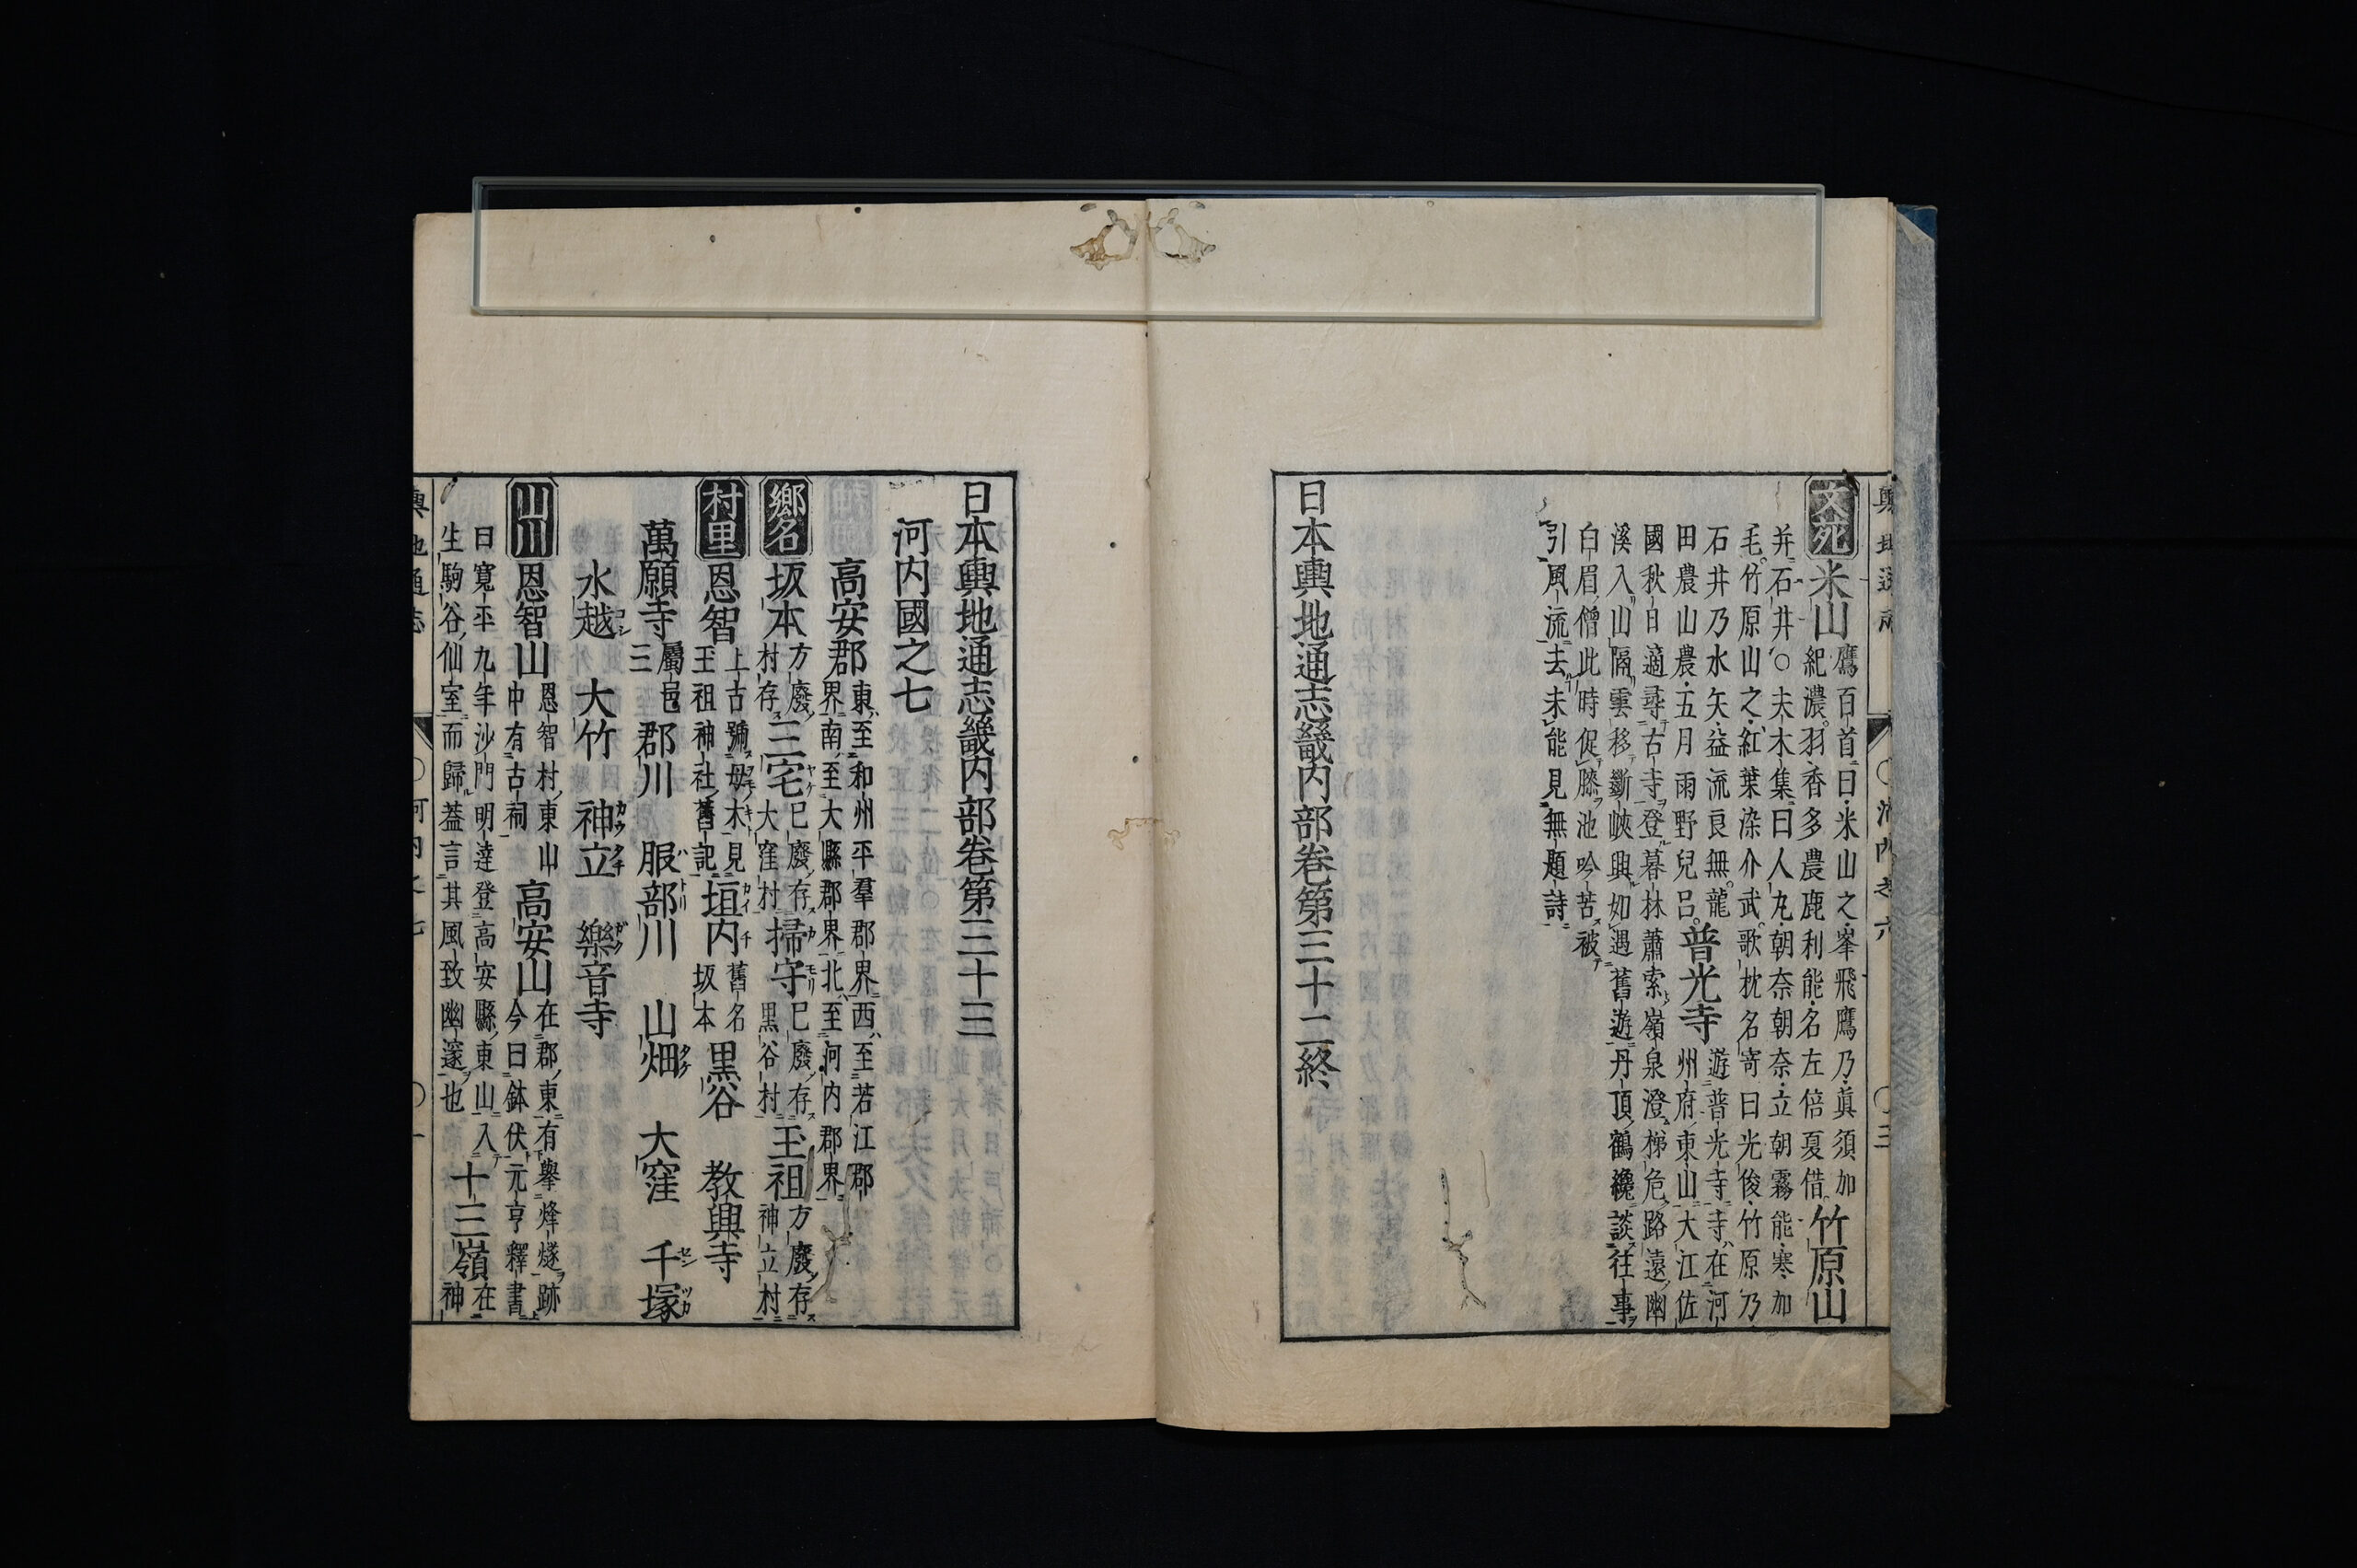 文苑
米山
鷹百首曰米山之峯飛鷹乃眞須加
紀濃羽香多農鹿利能名左倍夏借
竹原山
并石井○夫木集曰人丸朝奈朝奈立朝霧能寒加
毛竹原山之紅葉染介武歌枕名寄曰光俊竹原乃
石井乃水矢益流良無龍
田農山農五月雨野兒呂
普光寺
遊普光寺寺在河
州府東山大江佐
國秋日適尋古寺登暮林蕭索嶺泉澄梯危路遠幽
溪入山隔雲移斷峽興如遇舊遊丹頂鶴纔談往事
白眉僧此時促膝池吟苦被
引風流去未能見無題詩
日本輿地通志畿内部卷第三十二終
日本輿地通志畿内部卷第三十三
河内國之七
高安郡
東至和州平羣郡界西至若江郡
界南至大縣郡界北至河内郡界
鄉名
坂本
方廢存
村存
三宅
已廢存
大窪村
掃守
已廢存
黒谷村
玉祖
方廢存
神立村
村里
恩智
上古號母木見
玉祖神社舊記
垣内
舊名
坂本
黒谷 教興寺
萬願寺
屬邑
三
郡川 服部川 山畑 大窪 千塚
水越 大竹 神立 樂音寺
山川
恩智山
恩智村東山
中有古祠
高安山
在郡東有擧烽燧跡
今曰鉢伏元亨釋書
曰寛平九年沙門明達登高安縣東山入
生駒谷仙室而歸葢言其風致幽邃也
十三嶺
在
神